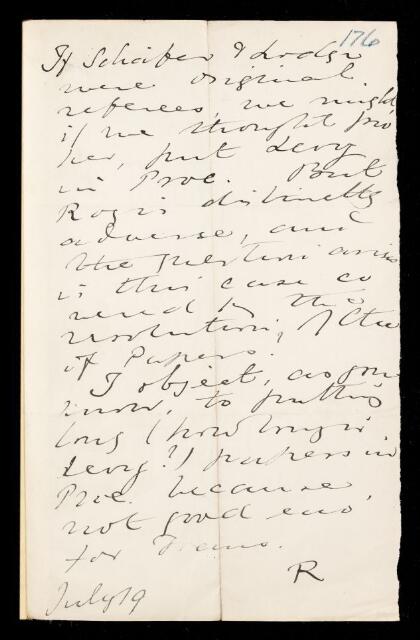 176
If Schäfer & Lodge
were original
referees, we might,
if we thought pro
per, put Levy
in Proc. But
Roy is distinctly
adverse, and
the question arises
is this case co
vered by the
resolution, of Ctee
of Papers.
I object, as you
know, to putting
long (how long is
Levy?) papers in
Proc. because
not good eno'
for Trans.
R
July 19